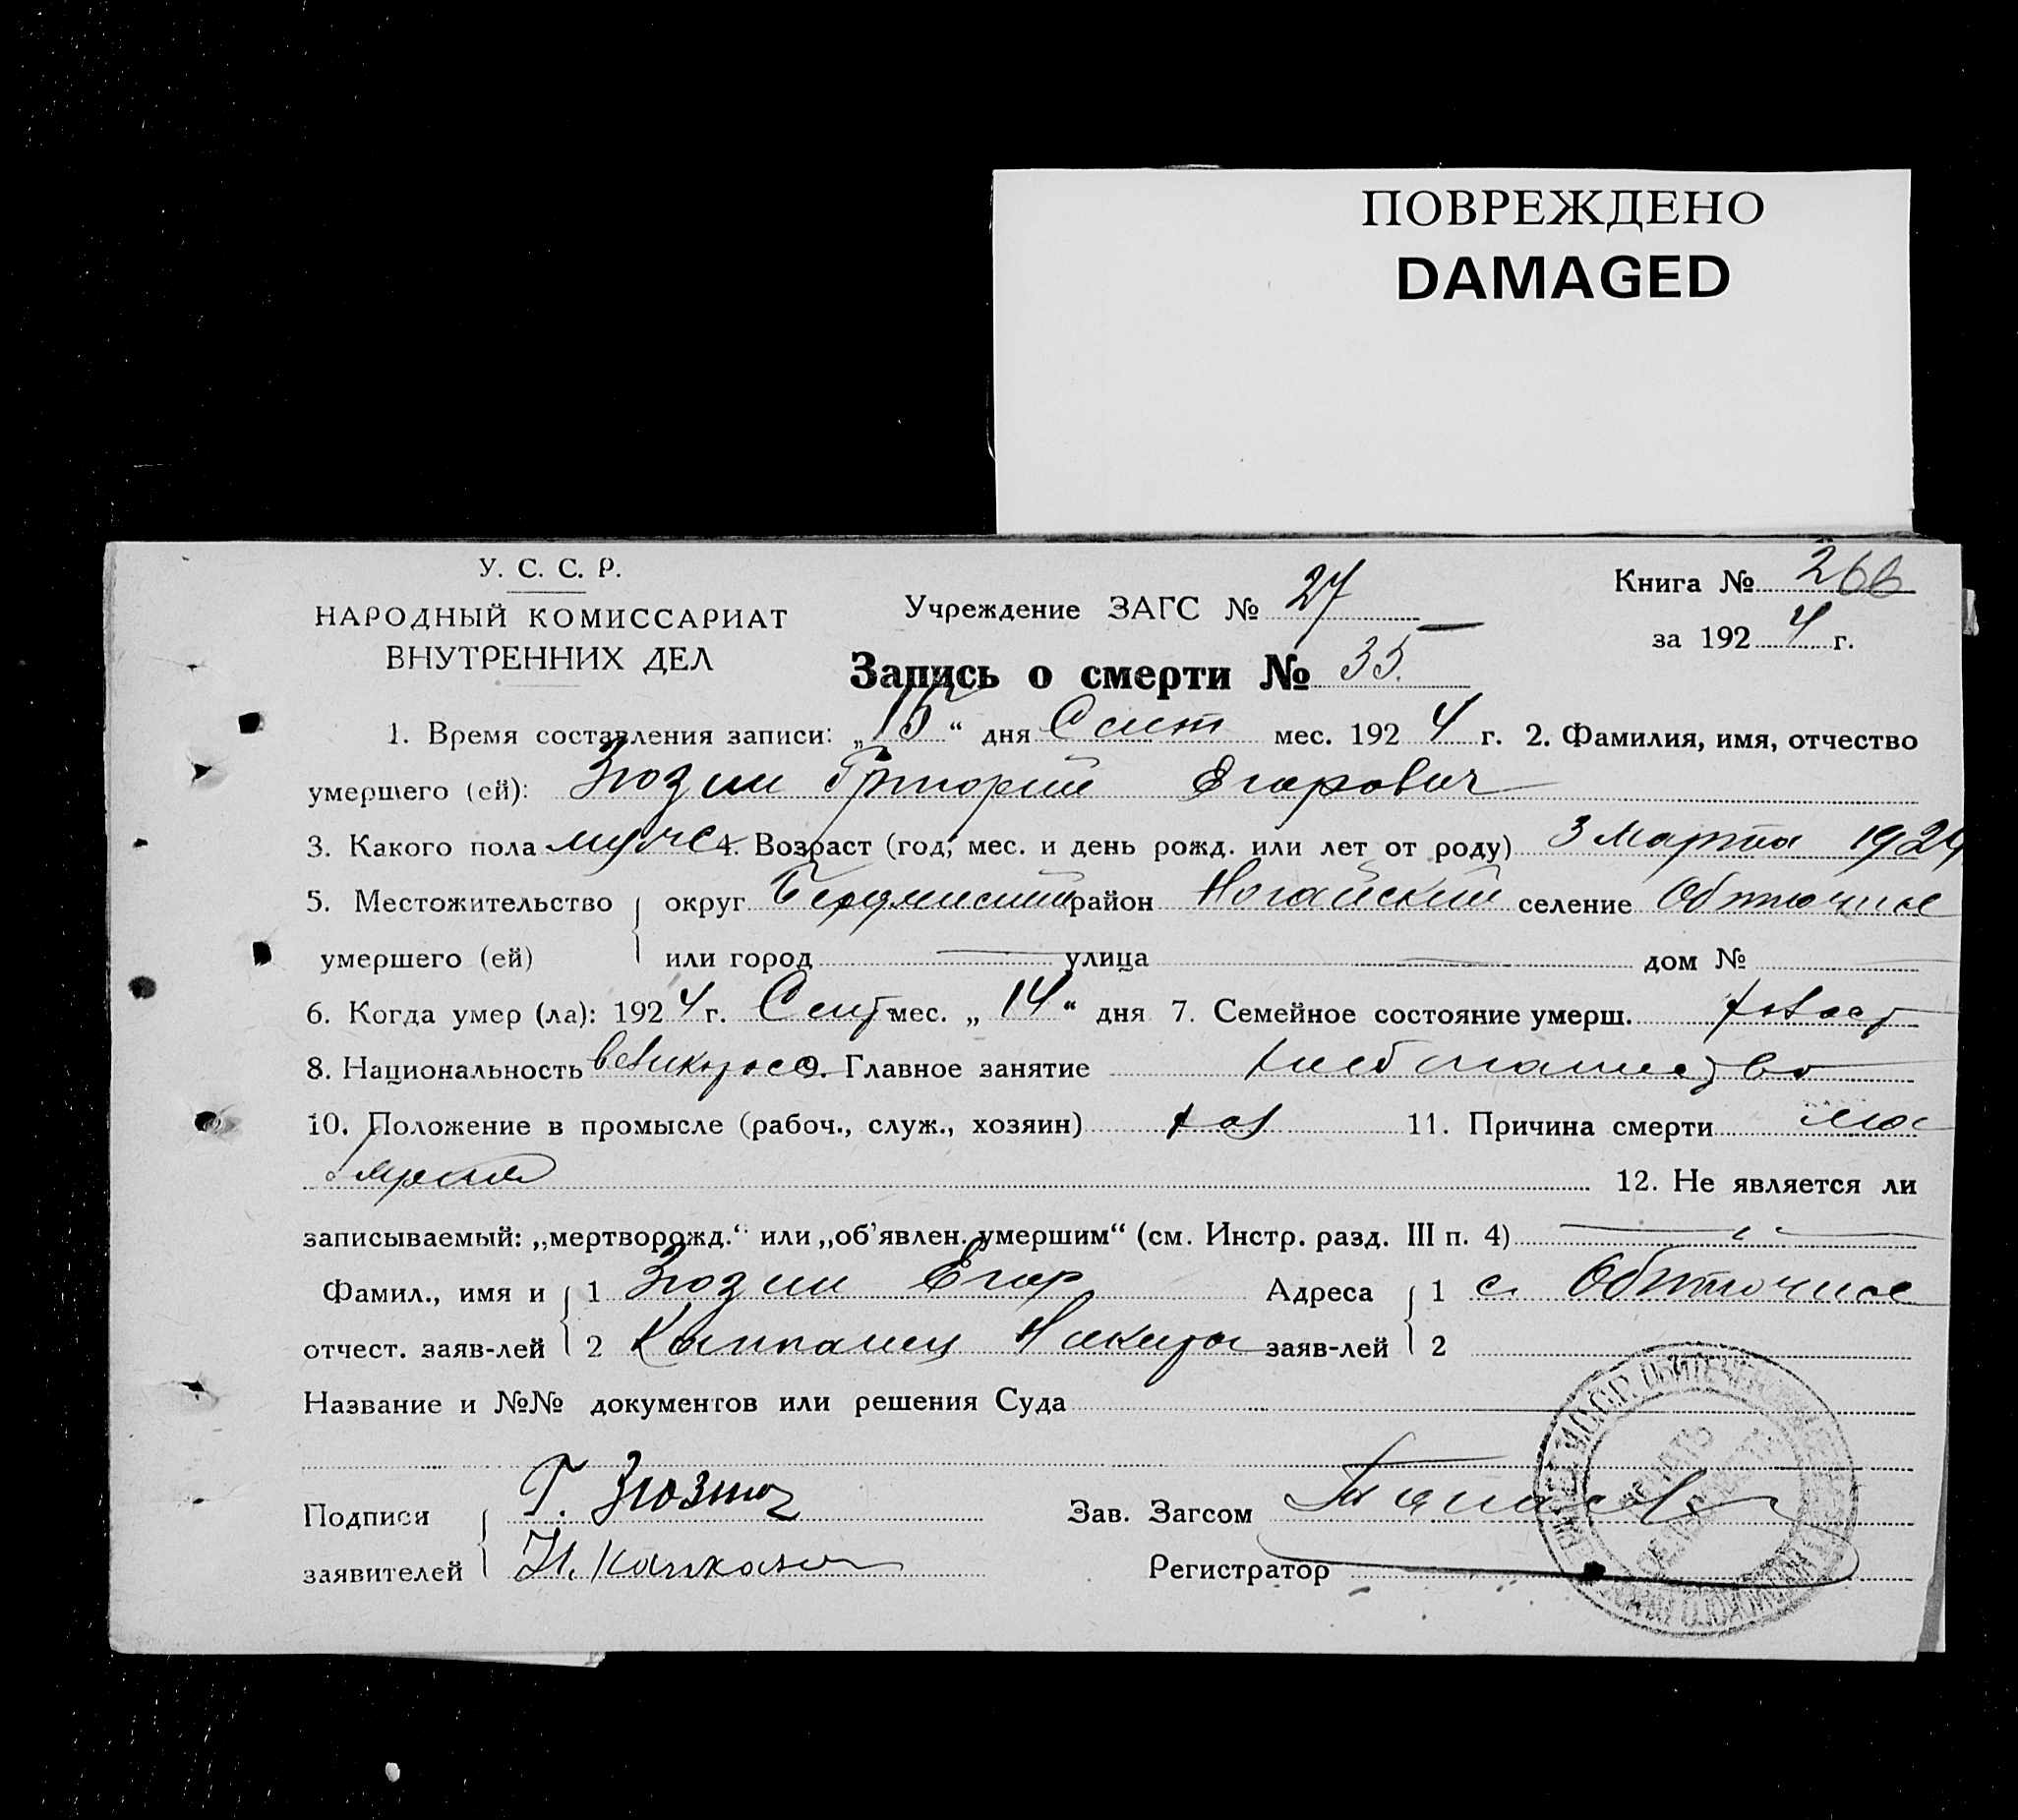 ПОВРЕЖДЕНО
DAMAGED
У. С. С. Р.
НАРОДНЫЙ КОМИССАРИАТ
ВНУТРЕННИХ ДЕЛ
Учреждение ЗАГС № 27
Книга № 266
за 1924 г.
Запись о смерти № 35.
1. Время составления записи: „15“ дня Сент мес. 1924 г. 2. Фамилия, имя, отчество
умершего (ей): Зюзин Григорий Егорович
3. Какого пола мужск 4. Возраст (год, мес. и день рожд. или лет от роду) 3 Марта 1924
5. Местожительство округ Бердянский район Ногайский селение Обиточное
умершего (ей) или город — улица — дом № —
6. Когда умер (ла): 1924 г. Сент мес. „14“ дня 7. Семейное состояние умерш. холост
8. Национальность великорос 9. Главное занятие хлебопашество
10. Положение в промысле (рабоч., служ., хозяин) хоз 11. Причина смерти
12. Не является ли
записываемый: „мертворожд.“ или „об’явлен. умершим“ (см. Инстр. разд. III п. 4) —
Фамил., имя и 1 Зюзин Егор Адреса 1 с. Обиточное
отчест. заяв-лей 2 Никита заяв-лей 2
Название и №№ документов или решения Суда
Подписи Г. Зюзин Зав. Загсом
заявителей Н. Регистратор
ПЕЧАТЬ